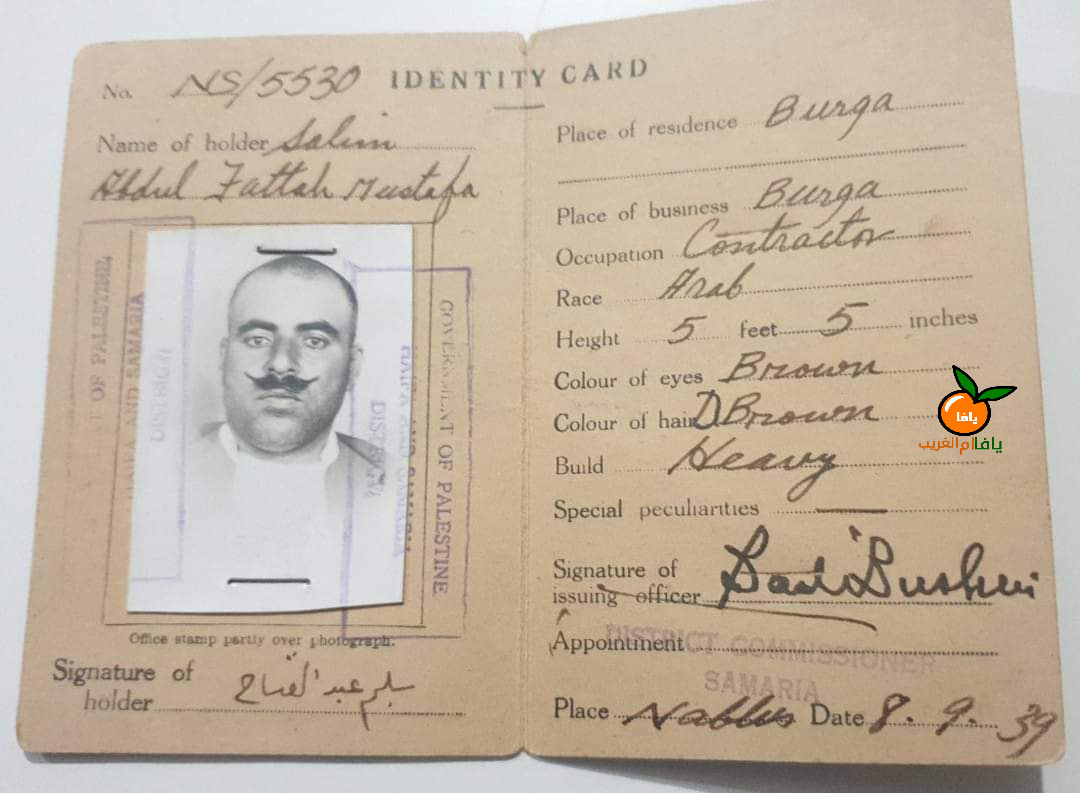 IDENTITY CARD
No. NS/5530
Name of holder Salim
Abdul Fattah Mustafa
OF PALESTINE
HAIFA AND SAMARIA
DISTRICT
GOVERNMENT OF PALESTINE
HAIFA AND SAMARIA
DISTRICT
Office stamp partly over photograph.
Signature of
holder سليم عبد الفتاح
Place of residence Burga
Place of business Burga
Occupation Contractor
Race Arab
Height 5 feet 5 inches
Colour of eyes Brown
Colour of hair D Brown
Build Heavy
Special peculiarities —
Signature of
issuing officer
Appointment DISTRICT COMMISSIONER
SAMARIA
Place Nablus Date 8.9.39
يافا
يافا ام الغريب